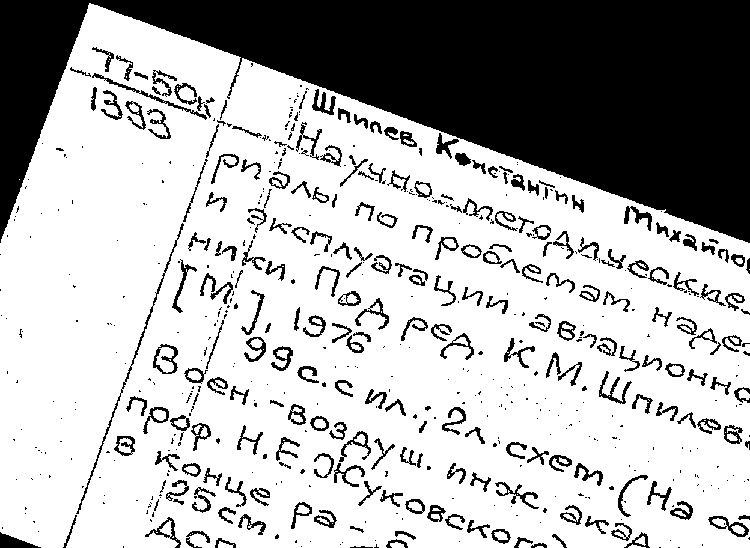 77-50к
1393
Шпилев, Константин Михайлов
Научно-методические
риалы по проблемам наде
и эксплуатации авиационно
ники. Под ред. К.М. Шпилева
[М.], 1976
99 с. с ил.; 2 л. схем. (На об
Воен.-воздуш. инж. акад
проф. Н.Е. Жуковского)
в конце ра-б
25 см.